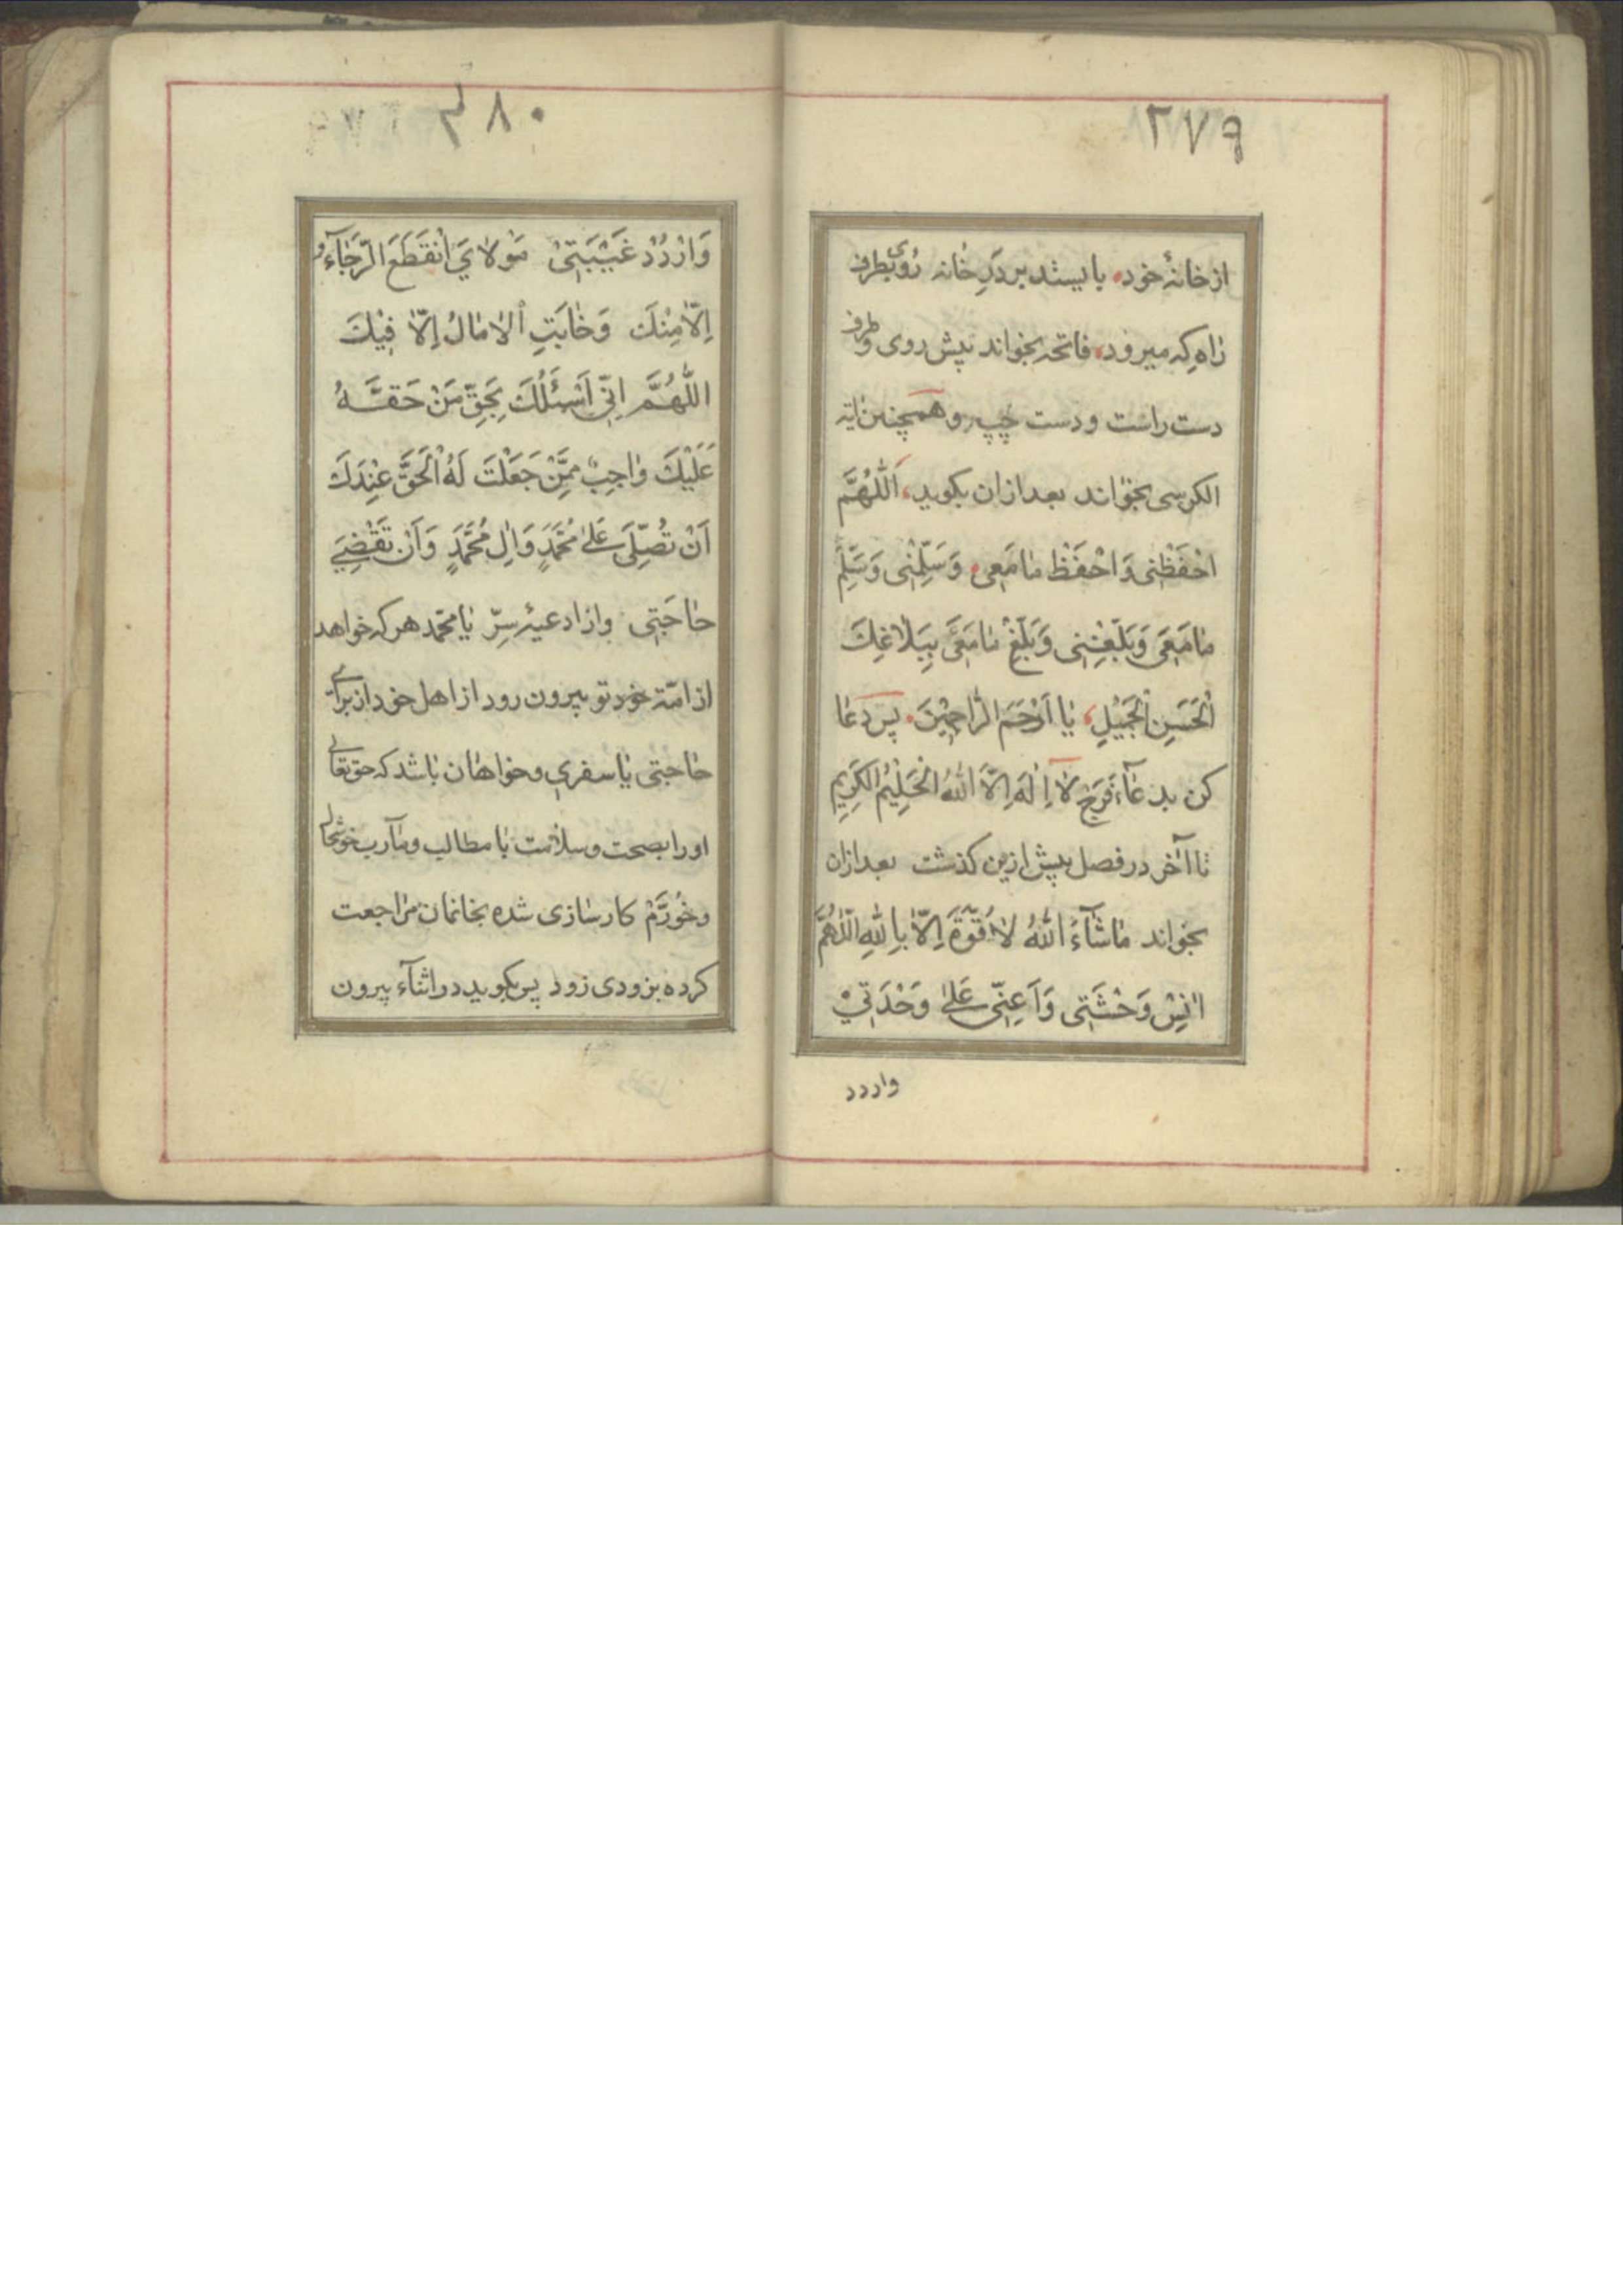 ۲۷۹
از خانهٔ خود بایستد بر دَرِ خانه رُوی بطرف
راه که میرود، فاتحه بخواند پیش روی و طرف
دست راست و دست چپ و همچنین ایة
الکرسی بخواند بعد ازان بکوید، اَللّٰهُمَّ
احْفَظْنی وَاحْفَظْ مامَعی وَسَلِّمْنی وَسَلِّمْ
مامَعَی وَبَلِّغْنِی وَبَلِّغْ مامَعَی بِبَلاغِکَ
الْحَسَنِ الْجَمیْلِ، یا اَرْحَمَ الرّاحِمیْنَ. پس دعا
کن بدعآء فَرَج لا اِلٰهَ اِلَّا اللّٰهُ الْحَلِیْمُ الکَرِیمِ
تا آخر در فصل پیش ازین کذشت بعد ازان
بخواند ماشآءَ اللّٰهُ لا قُوَّةَ اِلّا بِاللّٰهِ اللّٰهُمَّ
انِسْ وَحْشَتِی وَاَعِنّی عَلیٰ وَحْدَتِیْ
واردد
۳۸۰
وَارْدُدْ غَیْبَتِیْ مَوْلایَ انْقَطَعَ الرَّجٰآءُ
اِلّا مِنْکَ وَخابَتِ الاٰمالُ اِلّا فِیْکَ
اللّٰهُمَّ اِنّی اَسْئَلُکَ بِحَقِّ مَنْ حَقُّهُ
عَلَیْکَ واجِبٌ مِمَّنْ جَعَلْتَ لَهُ الْحَقَّ عِنْدَکَ
اَنْ تُصَلِّیَ عَلیٰ مُحَمَّدٍ وَاٰلِ مُحَمَّدٍ وَاَنْ تَقْضِیَ
حاجَتی وازادعیهٔ سِرّ یا محمّد هرکه خواهد
از امّة خود تو بیرون رود از اهل خود از برای
حاجتی یا سفری و خواهان باشد که حق تعالی
او را بصحت و سلامت با مطالب و مآرب خوشحال
و خُورَّمْ کارسازی شده بخانمان مراجعت
کرده بزودی زود پس بکوید در اثنآء بیرون